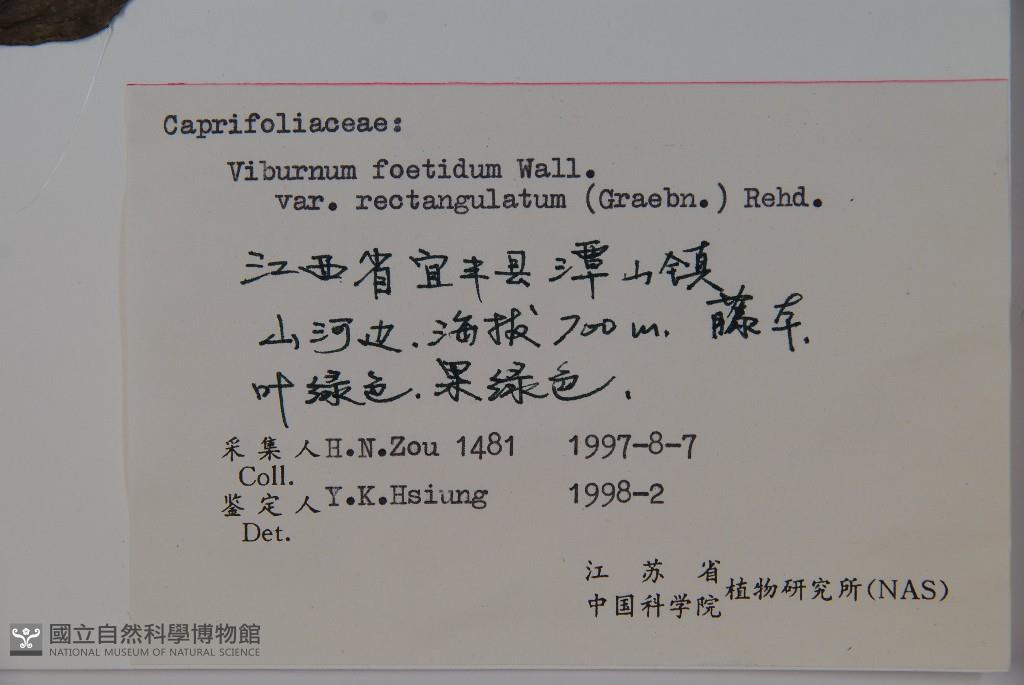 Caprifoliaceae:
Viburnum foetidum Wall.
var. rectangulatum (Graebn.) Rehd.
江西省宜丰县潭山镇
山河边.海拔700m. 藤本.
叶绿色.果绿色.
采集人H.N.Zou 1481 1997-8-7
Coll.
鉴定人Y.K.Hsiung 1998-2
Det.
江苏省
中国科学院植物研究所(NAS)
國立自然科學博物館
NATIONAL MUSEUM OF NATURAL SCIENCE